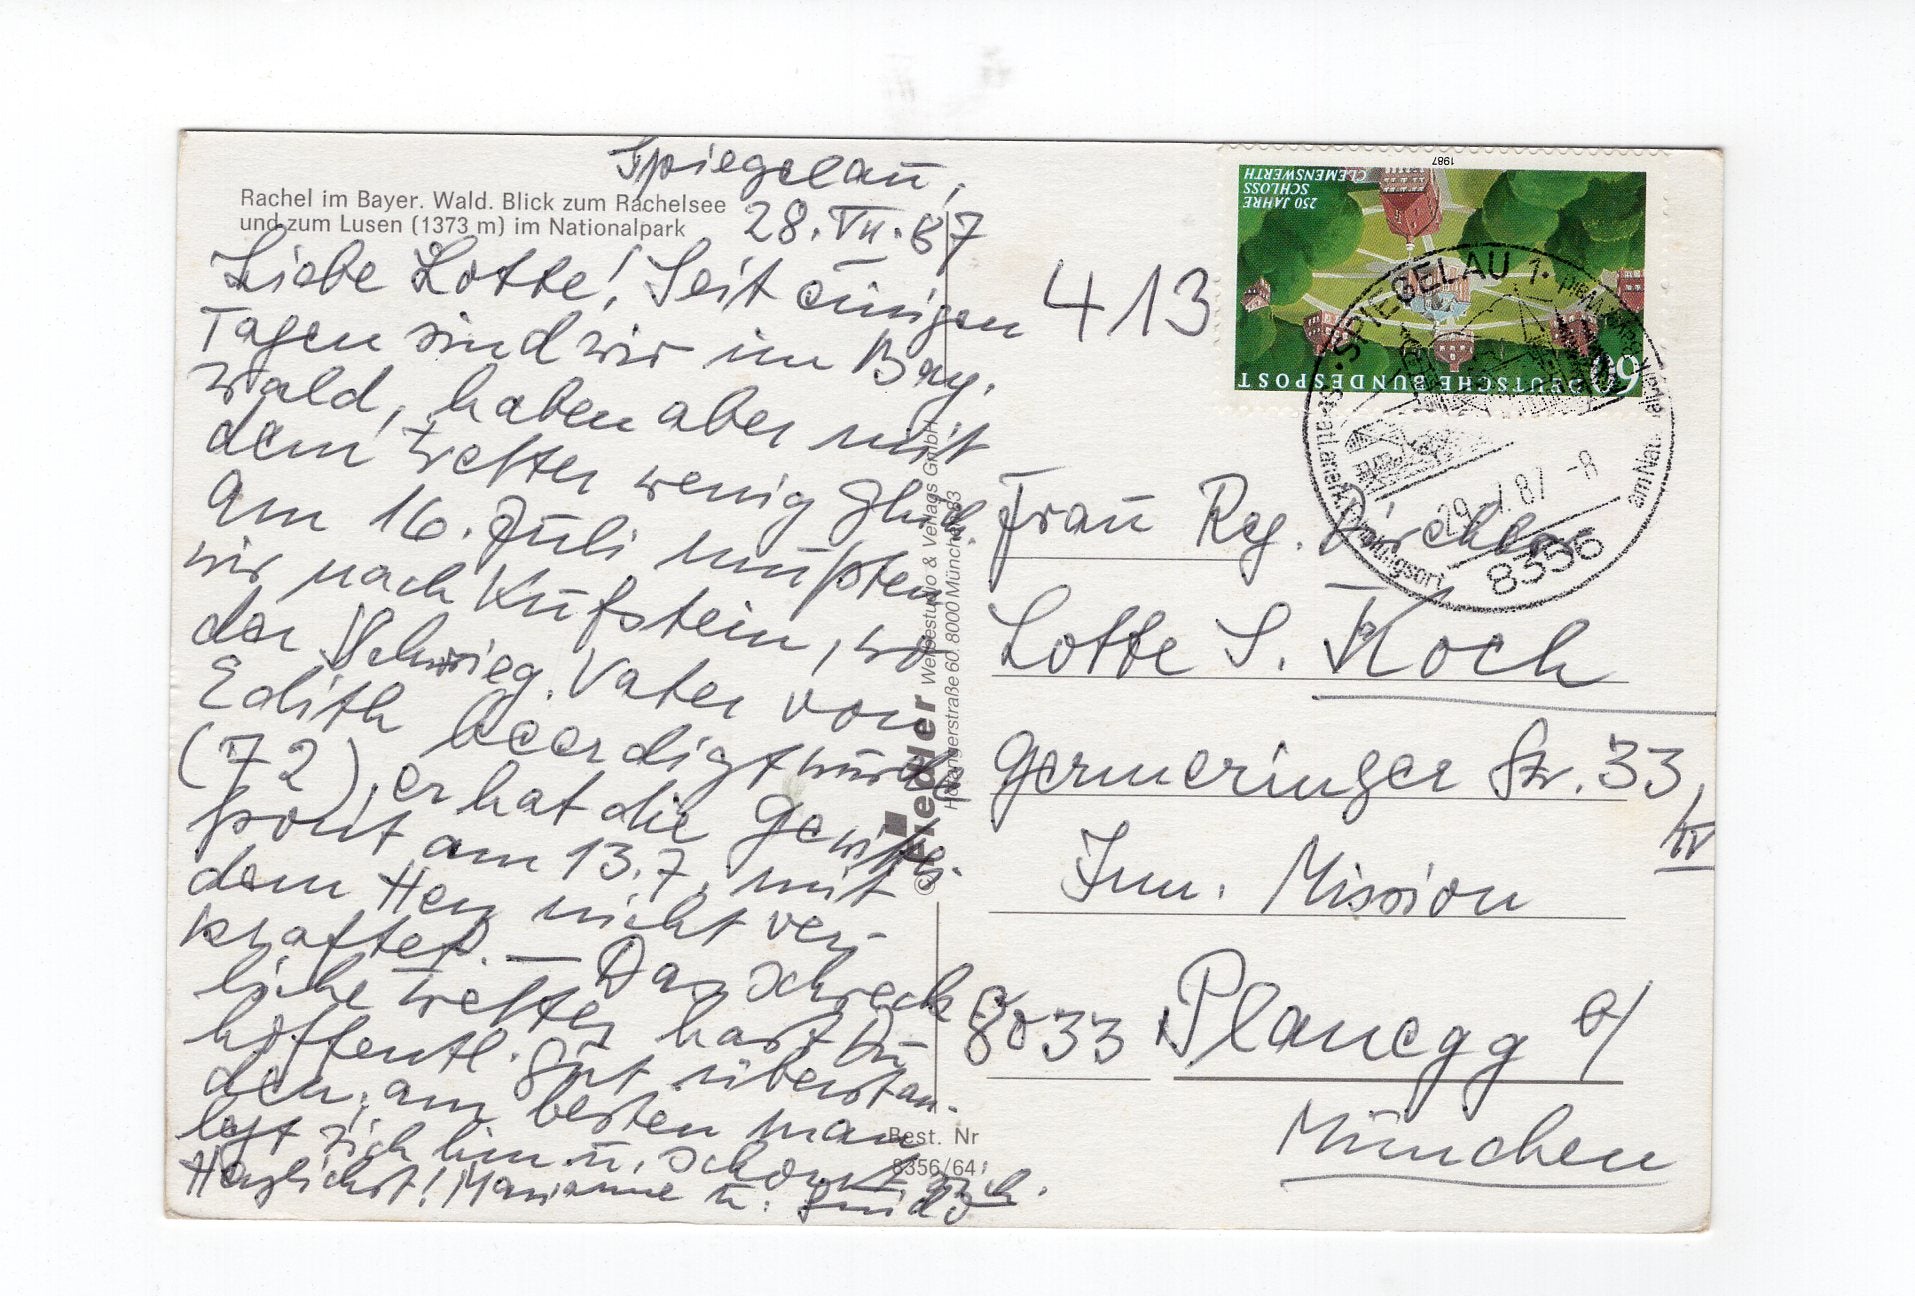 Rachel im Bayer. Wald. Blick zum Rachelsee
und zum Lusen (1373 m) im Nationalpark
Spiegelau,
28. VII. 87
Liebe Lotte! Seit einigen
Tagen sind wir im Bay.
Wald, haben aber mit
dem Wetter wenig Glück.
Am 16. Juli mußten
wir nach Kufstein, wo
der Schwieg. Vater von
Edith beerdigt wurde
(72), er hat die Gewitter-
front am 13.7. mit
dem Herz nicht ver-
kraftet. — Das schreck
liche Wetter hast Du
hoffentl. gut überstan-
den, am besten man
legt sich hin u. schont sich.
Herzlichst! Marianne u.
© Fieder Werbestudio & Verlags GmbH
8000 München 83
Best. Nr
8356/64
1987
250 JAHRE
SCHLOSS
CLEMENSWERTH
DEUTSCHE BUNDESPOST
60
SPIEGELAU 1
29.7.87 -8
8356
413
Frau Rg.
Lotte S. Koch
Germeringer Str. 33,
IV
Inn. Mission
8033 Planegg b/
München